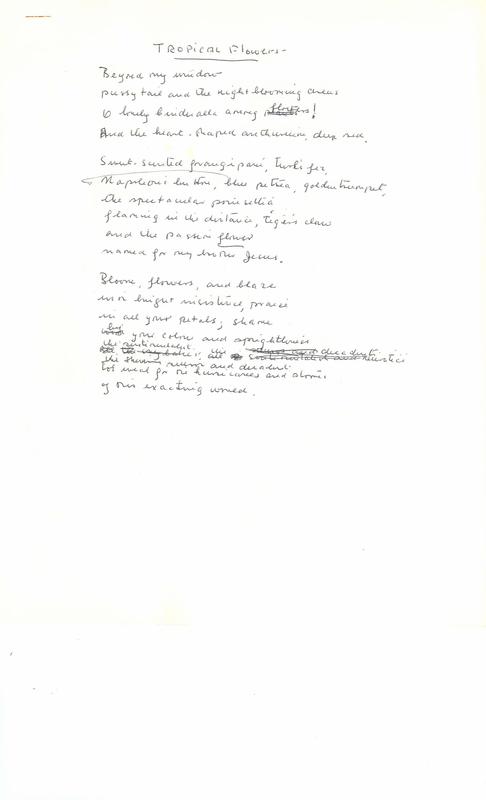 TROPICAL Flowers
Beyond my window
pussy tail and the night blooming cereus
O lonely among flowers!
And the heart-shaped anthurium, deep red.
Sweet-scented frangipani, turk's fez,
Napoleon's button, blue petrea, golden trumpet,
the spectacular poinsettia
flaming in the distance, tiger's claw
and the passion flower
named for my brother Jesus.
Bloom, flowers, and blaze
in bright insistence, praise
in all your petals; shame
by your color and sprightliness
the sentimental, the
and decadent
too weak for the hurricanes and storms
of this exacting world.